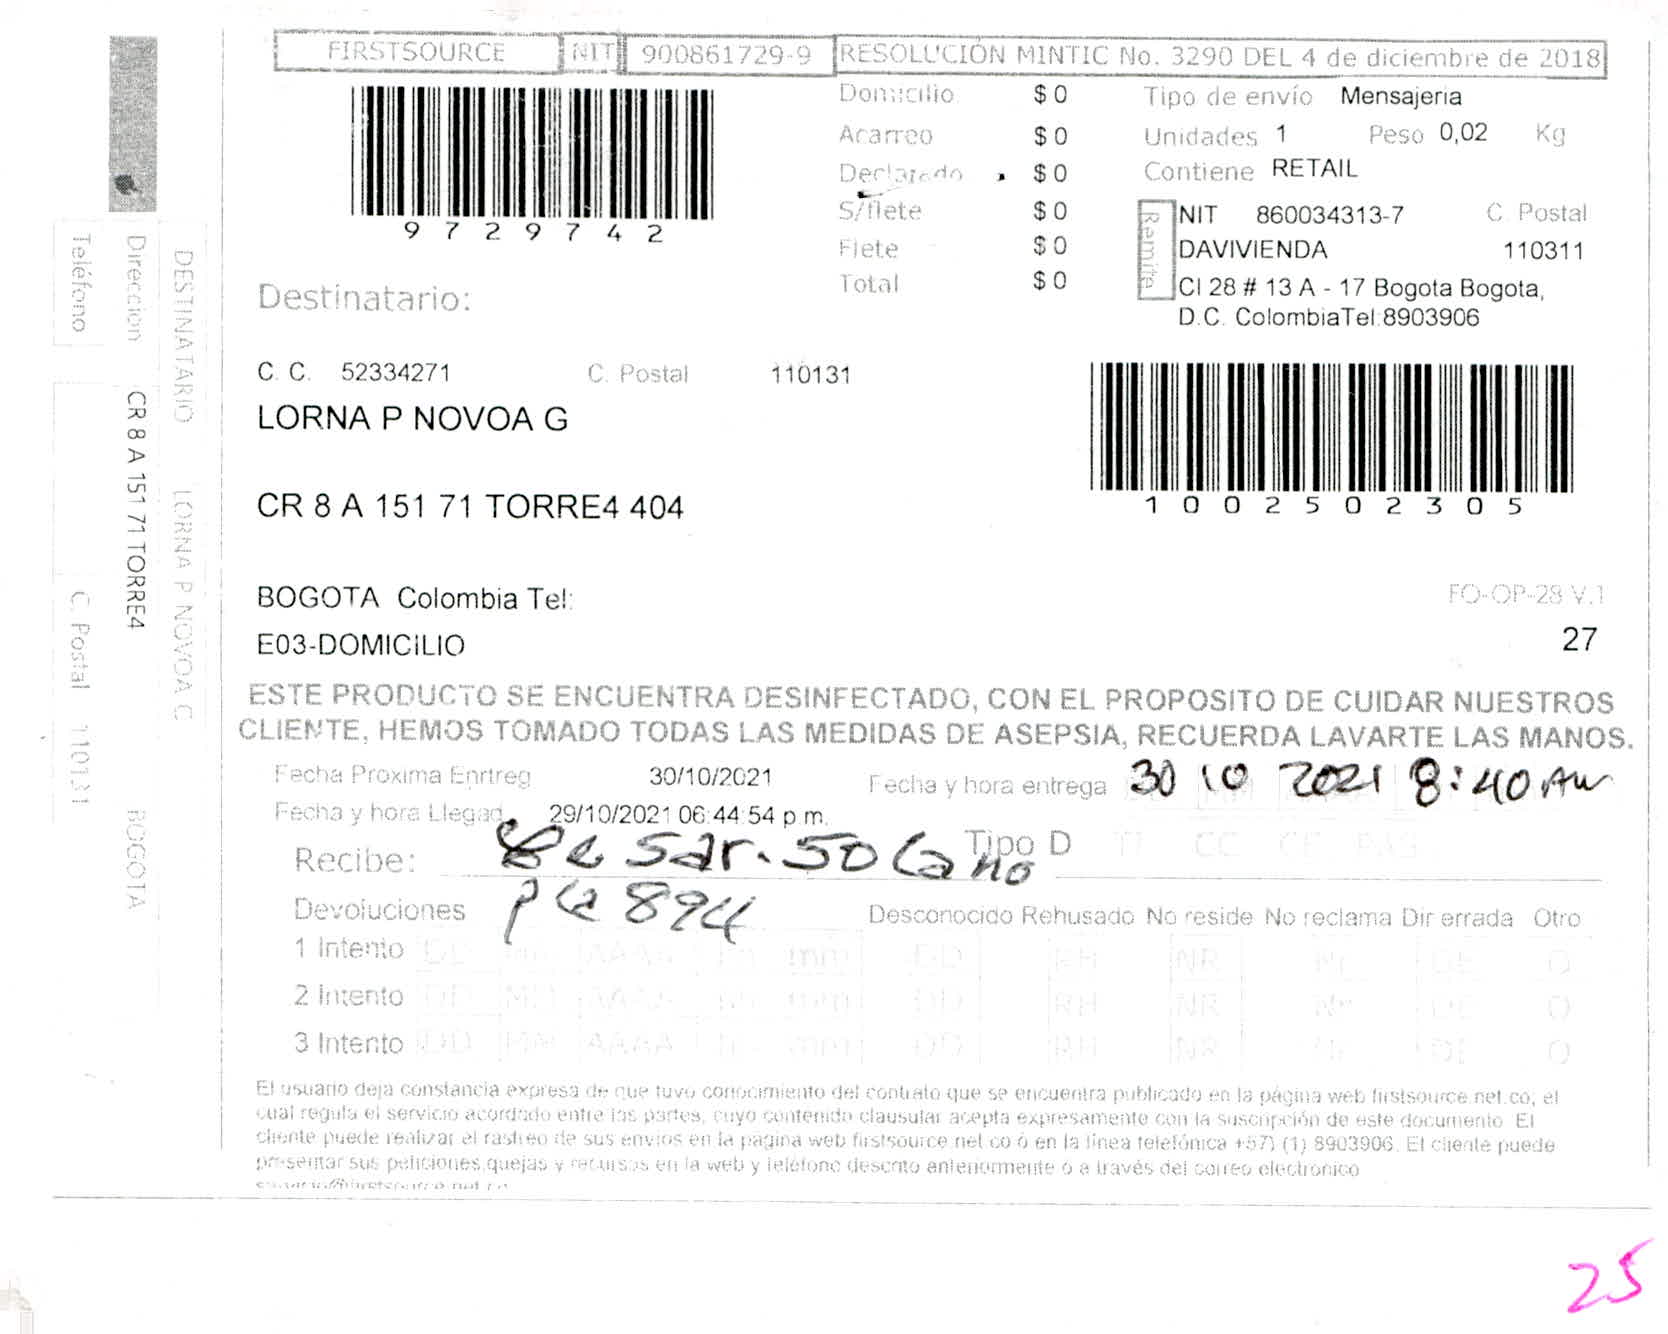 FIRSTSOURCE NIT 900861729-9 RESOLUCIÓN MINTIC No. 3290 DEL 4 de diciembre de 2018
9729742
Domicilio $ 0
Acarreo $ 0
Declarado $ 0
S/flete $ 0
Flete $ 0
Total $ 0
Tipo de envío Mensajeria
Unidades 1 Peso 0,02 Kg
Contiene RETAIL
Remite
NIT 860034313-7 C. Postal
DAVIVIENDA 110311
Cl 28 # 13 A - 17 Bogota Bogota,
D.C. ColombiaTel:8903906
1002502305
Destinatario:
C. C. 52334271 C. Postal 110131
LORNA P NOVOA G
CR 8 A 151 71 TORRE4 404
BOGOTA Colombia Tel:
E03-DOMICILIO
FO-OP-28 V.1
27
ESTE PRODUCTO SE ENCUENTRA DESINFECTADO, CON EL PROPOSITO DE CUIDAR NUESTROS
CLIENTE, HEMOS TOMADO TODAS LAS MEDIDAS DE ASEPSIA, RECUERDA LAVARTE LAS MANOS.
Fecha Proxima Enrtreg 30/10/2021 Fecha y hora entrega 30 10 2021 8:40 AM
Fecha y hora Llegad 29/10/2021 06:44:54 p.m.
Recibe: Cesar. Solano Tipo D TI CC CE PAS
894
Devoluciones Desconocido Rehusado No reside No reclama Dir errada Otro
1 Intento DD MM AAAA hh mm DD RH NR Nr DE O
2 Intento DD MM AAAA hh mm DD RH NR Nr DE O
3 Intento DD MM AAAA hh mm DD RH NR Nr DE O
El usuario deja constancia expresa de que tuvo conocimiento del contrato que se encuentra publicado en la página web firstsource.net.co, el
cual regula el servicio acordado entre las partes, cuyo contenido clausular acepta expresamente con la suscripción de este documento. El
cliente puede realizar el rastreo de sus envios en la página web firstsource.net.co ó en la línea telefónica +57) (1) 8903906. El cliente puede
presentar sus peticiones,quejas y recursos en la web y teléfono descrito anteriormente o a través del correo electrónico
DESTINATARIO LORNA P NOVOA G
Direccion CR 8 A 151 71 TORRE4 BOGOTA
Teléfono C. Postal 110131
25